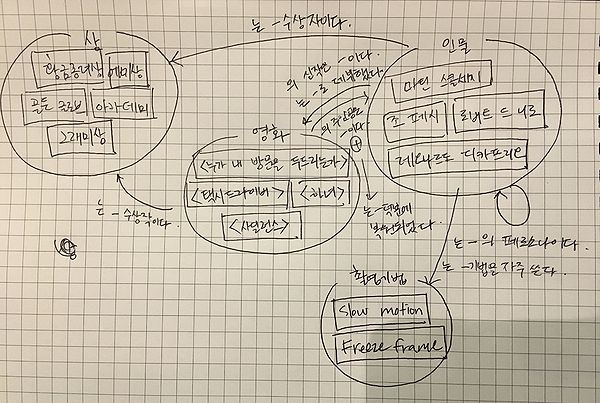 는 -수상자이다.
상
황금종려상
에미상
골든 글로브
아카데미
그래미상
인물
마틴 스콜세지
조 페시
로버트 드 니로
레오나르도 디카프리오
의 신작은 -이다.
는 -로 데뷔했다.
의 주인공은
-이다.
영화
<누가 내 방문을 두드리는가>
<택시드라이버>
<하녀>
<사일런스>
는 -수상작이다.
는 -덕분에
복원되었다.
는 -의 페르소나이다.
는 -기법을 자주 쓴다.
촬영기법
Slow motion
Freeze frame